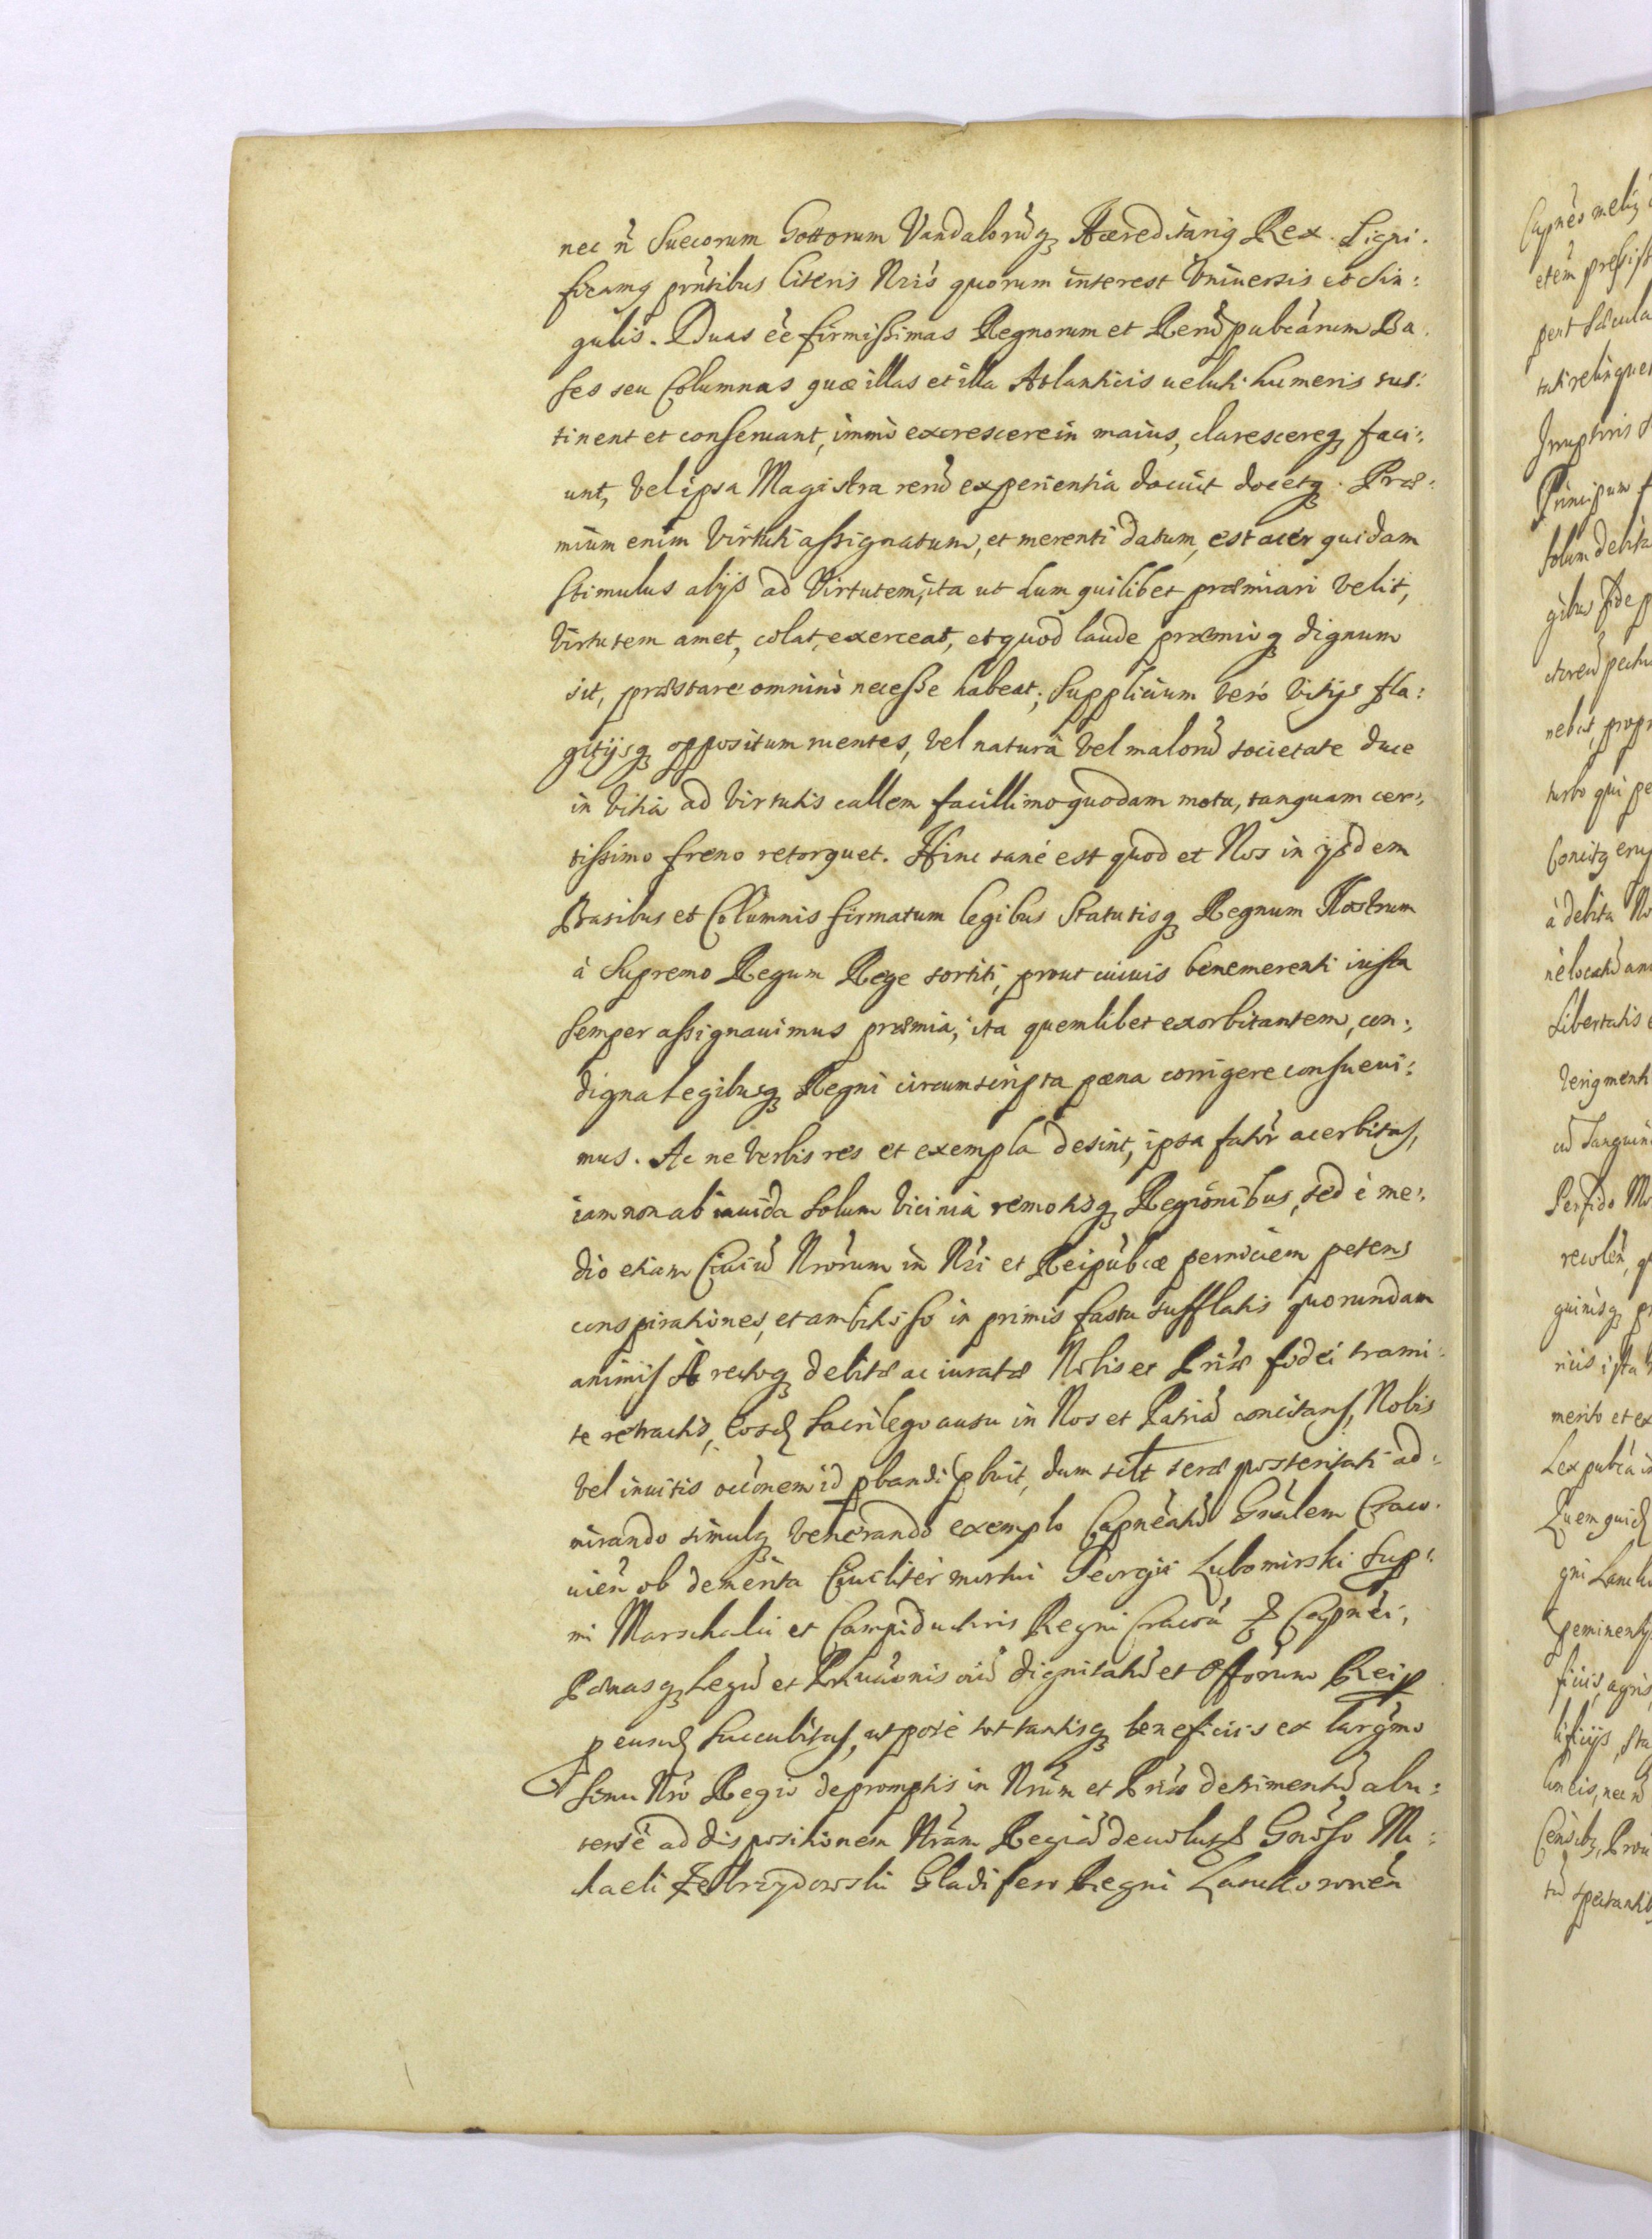 nec ń Suecorum Gottorum Vandalorũq Hæreditariq Rex. Signi:
ficamq pn̄tibus literis Nr̄is quorum interest Vniuersis et Sin:
gulis. Duas ee͂ firmissimas Regnorum et Rerũpubcarum Ba:
ses seu Columnas quæ illas et illa Atlanticis ueluti humeris sus:
tinent et conseruant, immò excrescere in maius, clarescereq faci:
unt, vel ipsa Magistra rerũ experientia docuit docetq. Præ:
mium enim Virtuti assignatum, et merenti datum, est acer quidam
Stimulus alijs ad Virtutem, ita ut dum quilibet præmiari velit,
Virtutem amet, colat, exerceat, et quod laude præmioq dignum
sit, præstare omninò necesse habeat; Supplicium verò Vitijs fla:
gitijsq oppositum mentes, vel naturâ vel malorũ societate duce
in Vitia ad Virtutis callem facillimo quodam motu, tanquam cer:
tissimo freno retorquet. Hinc sanè est quod et Nos in ijsdem
Basibus et Columnis firmatum legibus Statutisq Regnum Nostrum
à Supremo Regum Rege sortiti, prout cuiuis benemerenti iusta
Semper assignauimus præmia, ita quemlibet exorbitantem, con:
digna legibusq Regni circumscripta pæna corrigere consueui:
mus. Ac ne Verbis res et exempla desint, ipsa fatõr acerbitas,
iam non ab inuida solum Vicinia remotisq Regionibus, sed è me:
dio etiam Ciuiũ Nrorum in Nri et Reipubcæ perniciem petens
conspirationes, et ambitioso in primis fastu sufflatis quorundam
animis A rectoq debitæ ac iuratæ Nobis et Priæ fidei trami:
te retractis, eosq Sacrilego ausu in Nos et Patriã concitans, Nobis
vel inuitis occõnem id pbandi pbuit, dum seræ posteritati ad:
mirando simulq venerando exemplo Capneatũ Gnalem Craco:
uien͂ ob demerita Ciuiliter mortui Georgii Lubomirski Sup:
mi Marschalci et Campiductoris Regni Cracou͂ Capnei,
Pænasq Legũ et dignitatũ et Offorum Reip
p eunq Succubitas, utpote tot tantisq beneficiis ex largmo
Sinu Nro Regio depromptis in Nrum et Priæ detrimentũ abu:
ad dispositionem Nram Regiã Gnoso Mi:
chaeli Zebrzydowski Gladifero Regni Lanckoronen͂
Capneo
Irruptoris
Principum
Libertatis
Perfido
merito et ex
Quem